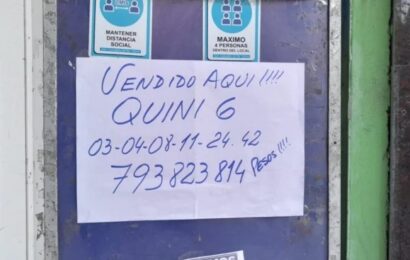 MANTENER
DISTANCIA
SOCIAL
MAXIMO
4 PERSONAS
DENTRO DEL LOCAL
VENDIDO AQUI!!!!
QUINI 6
03-04-08-11-24.42
793823814 PESOS!!!!